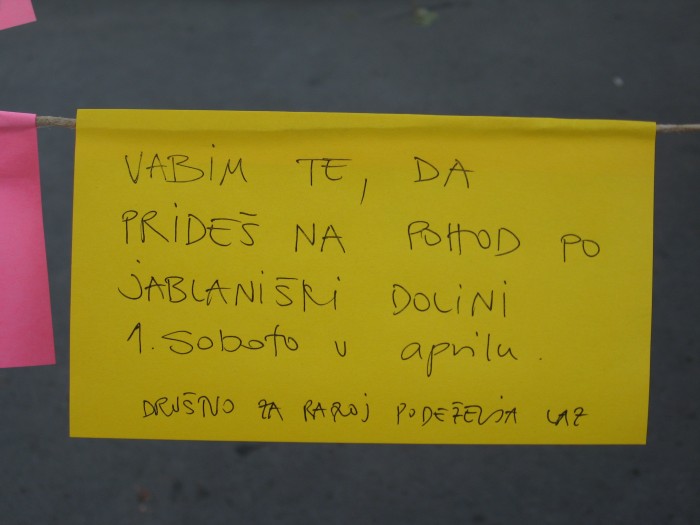 VABIM TE, DA
PRIDEŠ NA POHOD PO
JABLANIŠKI DOLINI
1. soboto v aprilu.
DRUŠTVO ZA RAZVOJ PODEŽELJA LAZ